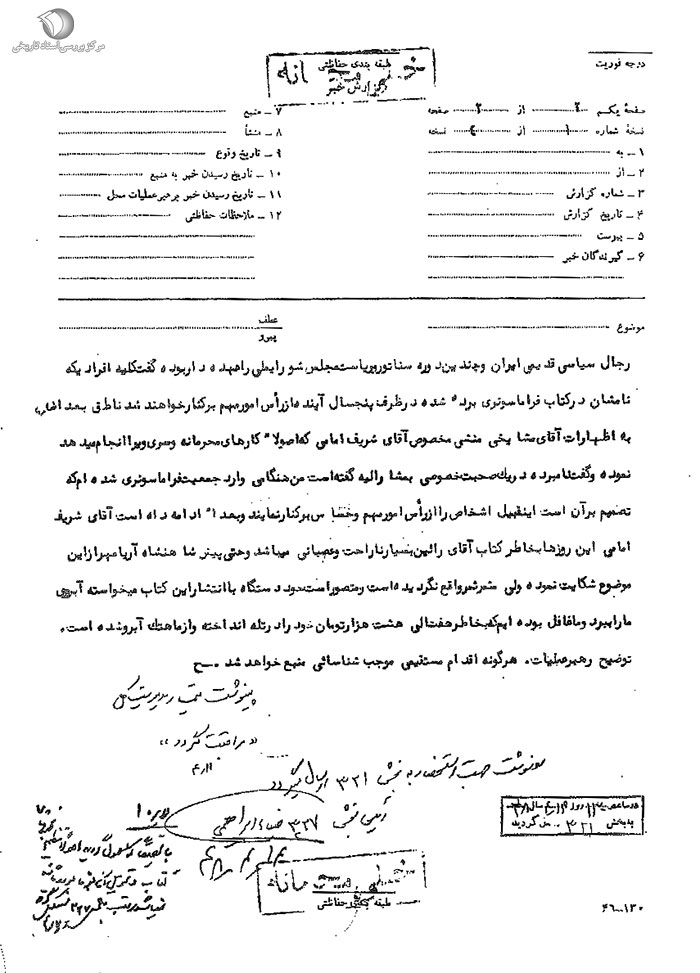 مرکز بررسی اسناد تاریخی
درجه فوریت
طبقه بندی حفاظتی
خیلی محرمانه
گزارش خبر
صفحهٔ یکم ۲ از ۲ صفحه
نسخهٔ شماره ۱ از نسخه
۱ـ به
۲ـ از
۳ـ شماره گزارش
۴ـ تاریخ گزارش
۵ـ پیوست
۶ـ گیرندگان خبر
۷ـ منبع
۸ـ منشأ
۹ـ تاریخ وقوع
۱۰ـ تاریخ رسیدن خبر به منبع
۱۱ـ تاریخ رسیدن خبر برهبر عملیات محل
۱۲ـ ملاحظات حفاظتی
موضوع
عطف
پیرو
رجال سیاسی قدیمی ایران و چندین دوره سناتور و ریاست مجلس شورایملی را بعهده دار بوده گفت کلیه افرادیکه
نامشان در کتاب فراماسونری برده شده در ظرف پنجسال آینده از رأس امور مهم برکنار خواهند شد ناطق بعد اشاره
به اظهارات آقای مشایخی منشی مخصوص آقای شریف امامی که اصولا" کارهای محرمانه و سری ویرا انجام میدهد
نموده و گفت نامبرده در یک صحبت خصوصی بمشارالیه گفته است من هنگامی وارد جمعیت فراماسونری شده ام که
تصمیم بر آن است اینقبیل اشخاص را از رأس امور مهم و حساس برکنار نمایند و بعدا" ادامه داده است آقای شریف
امامی این روزها بخاطر کتاب آقای رائین بسیار ناراحت و عصبانی میباشد و حتی پیش شاهنشاه آریامهر از این
موضوع شکایت نموده ولی مثمرثمر واقع نگردیده است و متصور است خود دستگاه با انتشار این کتاب میخواسته آبروی
ما را ببرد و ما غافل بوده ایم که بخاطر هفت الی هشت هزار تومان خود را در تله انداخته و از ما هتک آبرو شده است.
توضیح رهبر عملیات. هرگونه اقدام مستقیمی موجب شناسائی منبع خواهد شد. ح
پینوشت تیمسار مدیریت کل
«مراقبت گردد»
۴/۱۱
رونوشت جهت استحضار به بخش ۳۲۱ ارسال گردد
رئیس بخش ۳۲۷
در ساعت روز سال
به بخش ۳۲۱ گردید
خیلی محرمانه
طبقه بندی حفاظتی
۴۶ـ۱۳۰